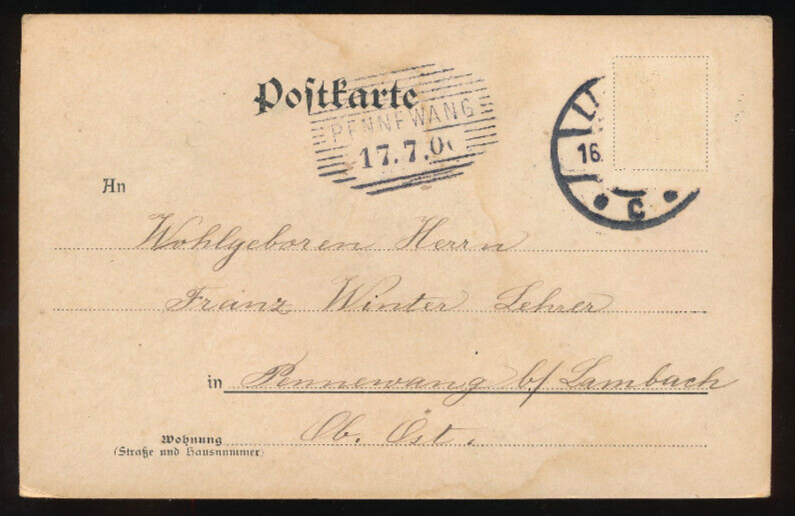 Postkarte
PENNEWANG
17.7.0
16.
C
An
Wohlgeboren Herrn
Franz Winter Lehrer
in Pennewang b/ Lambach
Ob. Öst.
Wohnung
(Straße und Hausnummer)